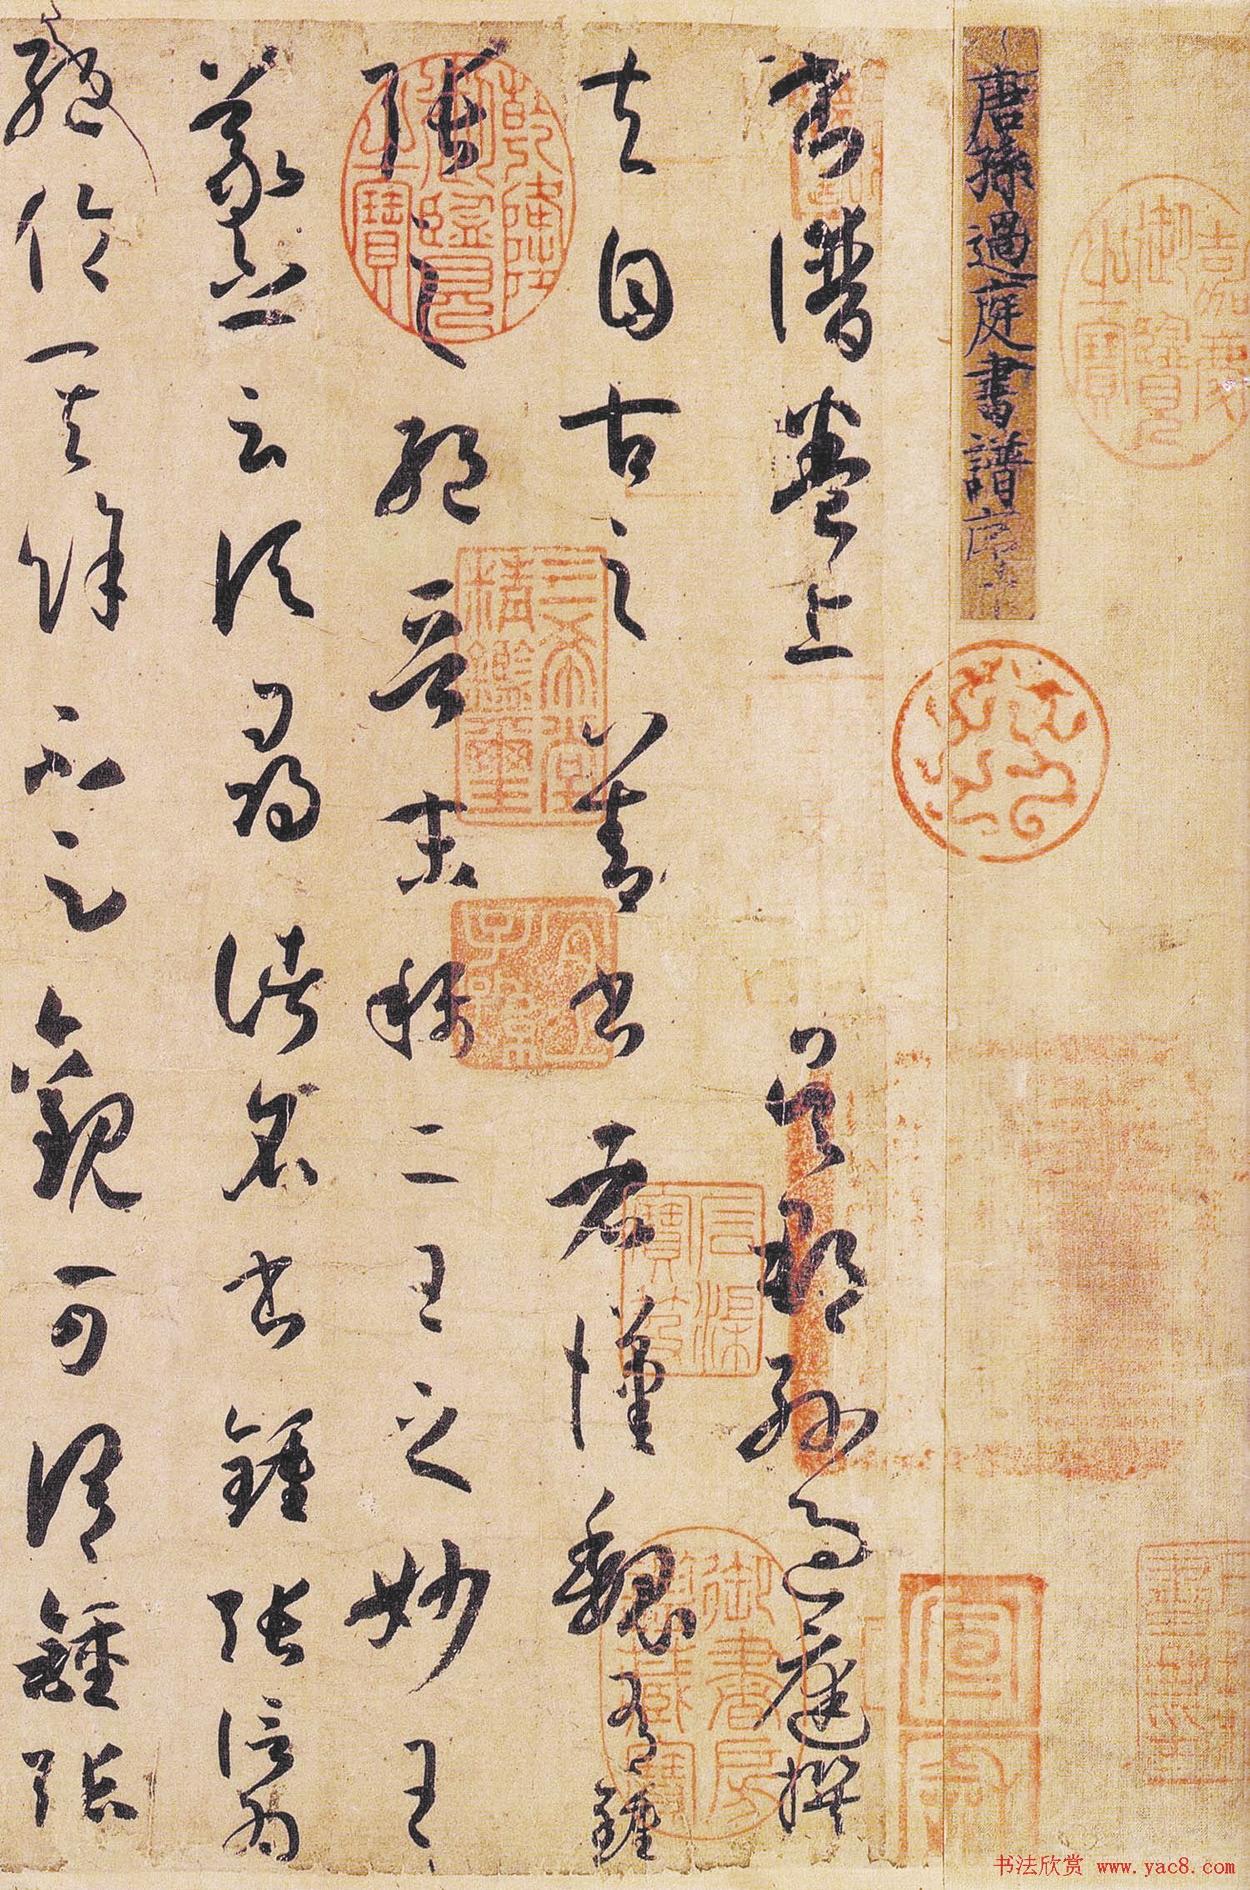 嘉慶御覽之寶
唐孫過庭書譜序
宣和
書譜卷上 吳郡孫過庭撰
夫自古之善書者漢魏有鍾
張之絕晉末稱二王之妙王
羲之云頃尋諸名書鍾張信為
絕倫其餘不足觀可謂鍾張
乾隆御覽之寶
三希堂精鑑璽
宜子孫
石渠寶笈
御書房鑑藏寶
书法欣赏 www.yac8.com